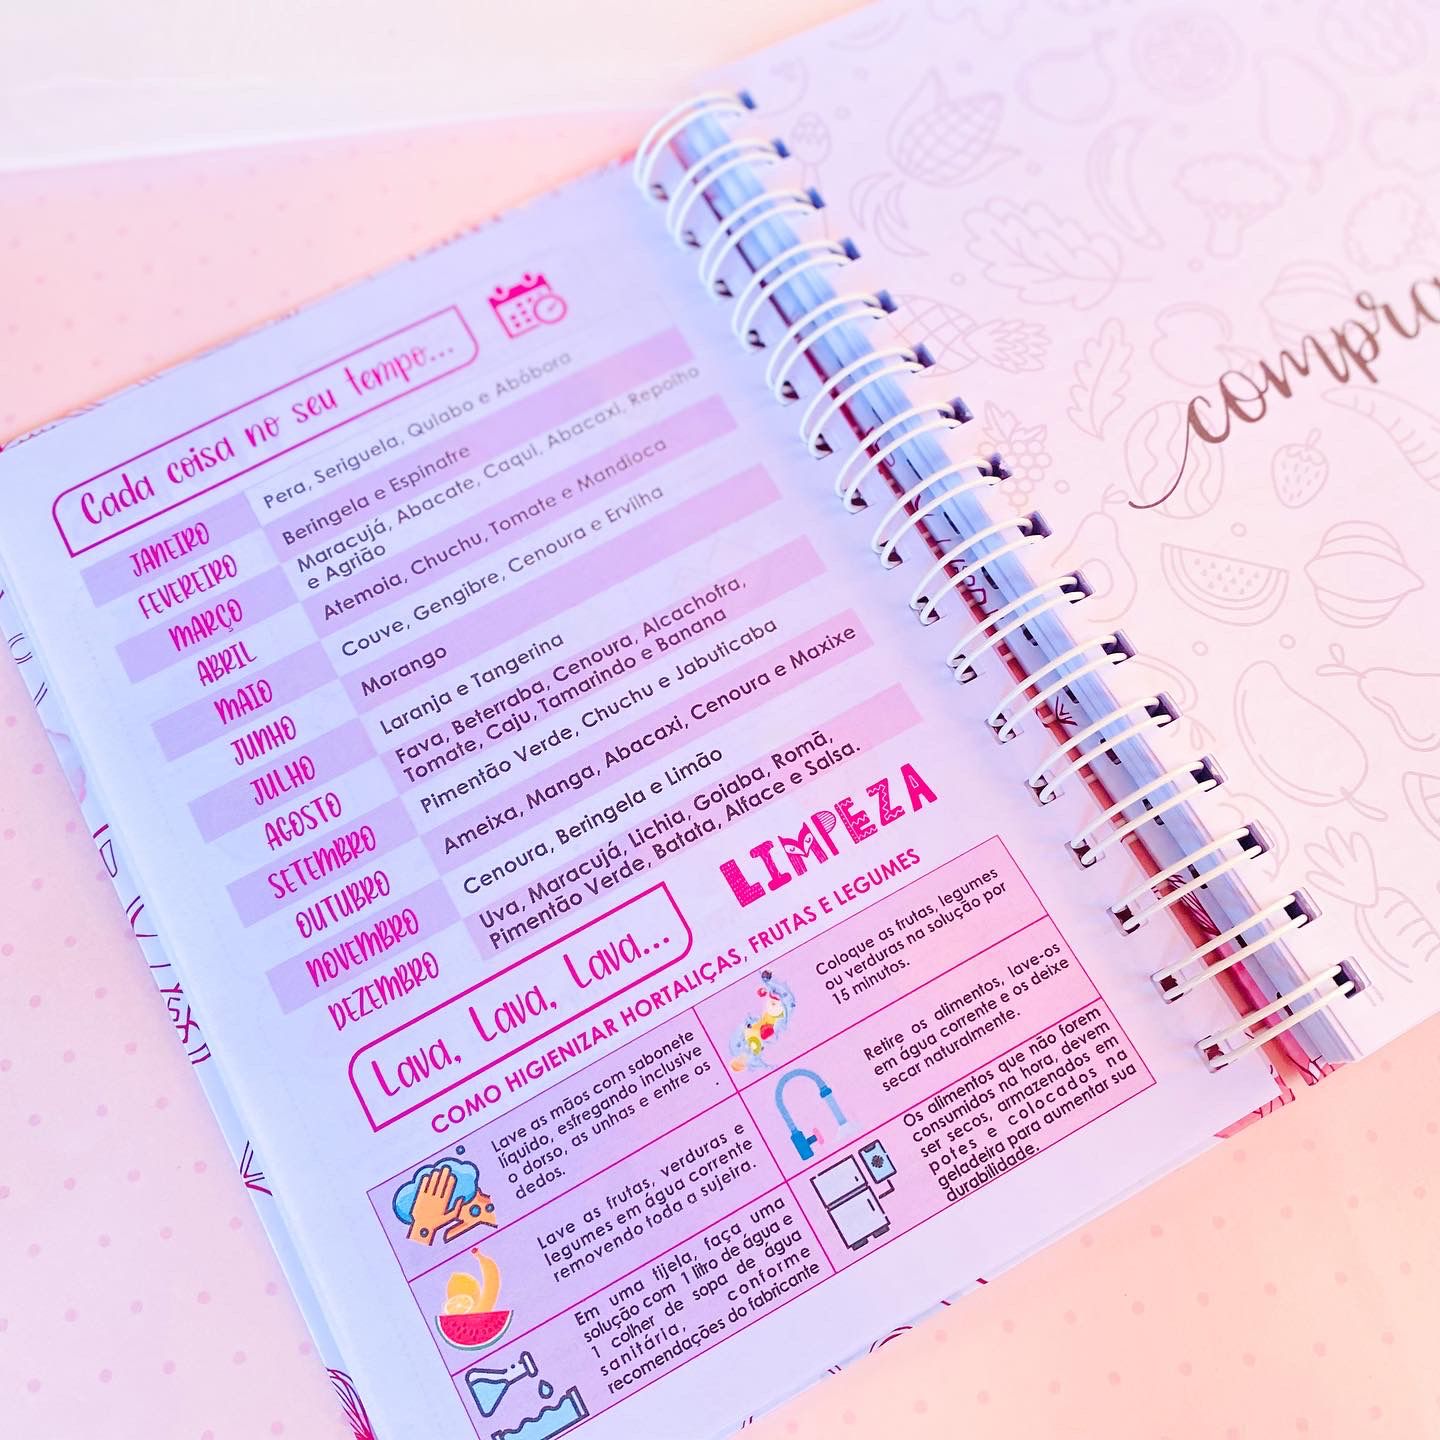 Cada coisa no seu tempo...
JANEIRO Pera, Seriguela, Quiabo e Abóbora
FEVEREIRO Beringela e Espinafre
MARÇO Maracujá, Abacate, Caqui, Abacaxi, Repolho
e Agrião
ABRIL Atemoia, Chuchu, Tomate e Mandioca
MAIO Couve, Gengibre, Cenoura e Ervilha
JUNHO Morango
JULHO Laranja e Tangerina
AGOSTO Fava, Beterraba, Cenoura, Alcachofra,
Tomate, Caju, Tamarindo e Banana
SETEMBRO Pimentão Verde, Chuchu e Jabuticaba
OUTUBRO Ameixa, Manga, Abacaxi, Cenoura e Maxixe
NOVEMBRO Cenoura, Beringela e Limão
DEZEMBRO Uva, Maracujá, Lichia, Goiaba, Romã,
Pimentão Verde, Batata, Alface e Salsa.
Lava, Lava, Lava...
LIMPEZA
COMO HIGIENIZAR HORTALIÇAS, FRUTAS E LEGUMES
Lave as mãos com sabonete
líquido, esfregando inclusive
o dorso, as unhas e entre os
dedos.
Lave as frutas, verduras e
legumes em água corrente
removendo toda a sujeira.
Em uma tijela, faça uma
solução com 1 litro de água e
1 colher de sopa de água
sanitária, conforme
recomendações do fabricante
Coloque as frutas, legumes
ou verduras na solução por
15 minutos.
Retire os alimentos, lave-os
em água corrente e os deixe
secar naturalmente.
Os alimentos que não forem
consumidos na hora, devem
ser secos, armazenados em
potes e colocados na
geladeira para aumentar sua
durabilidade.
compra